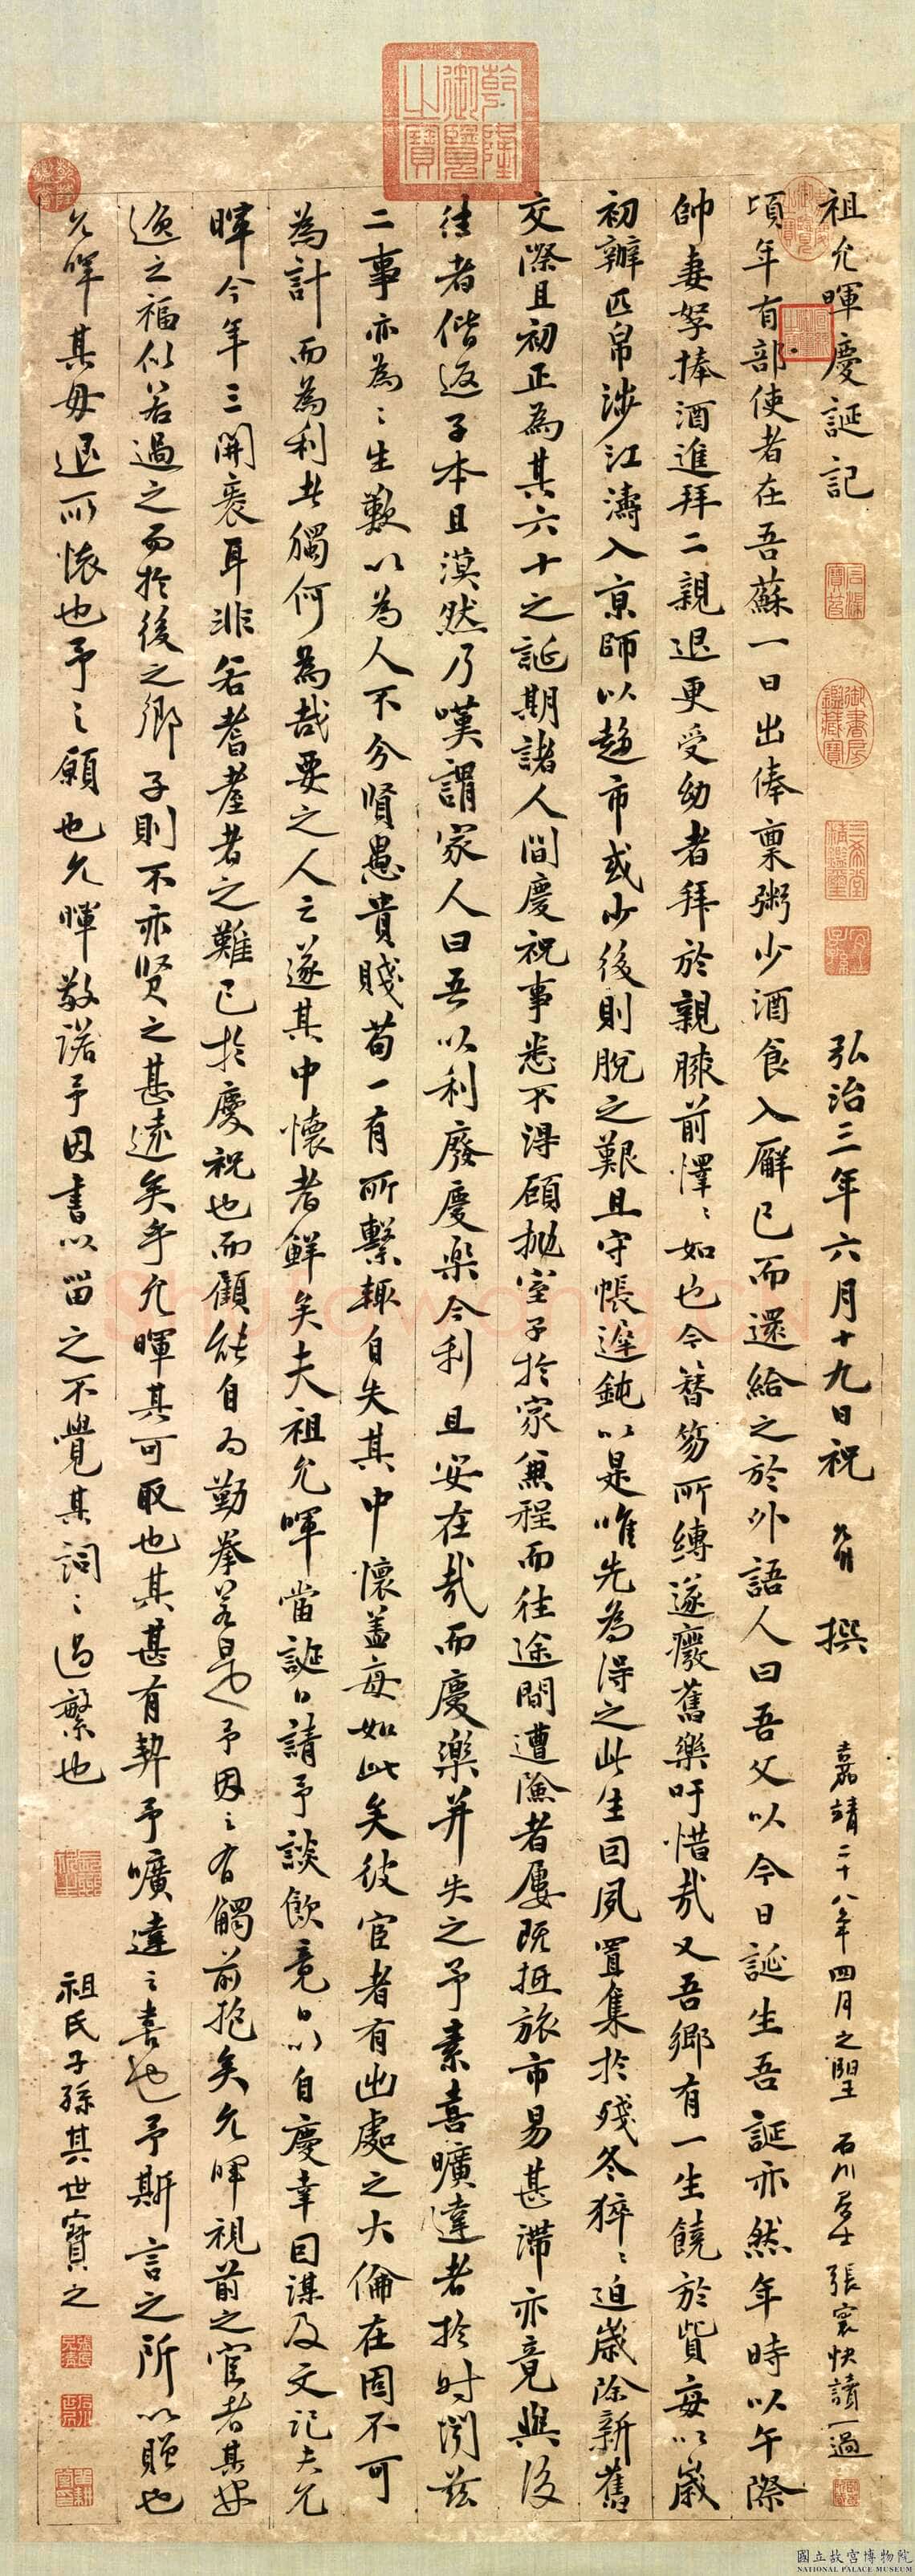 祖允暉慶誕記 弘治三年六月十九日祝 允明 撰 嘉靖二十八年四月之望 石川居士張寰快讀一過
頃年有部使者在吾蘇一日出俸稟粥少酒食入廨已而還給之於外語人曰吾父以今日誕生吾誕亦然年時以午際
帥妻孥捧酒進拜二親退更受幼者拜於親膝前懌〻如也今簪笏所縛遂癈舊樂吁惜哉又吾鄉有一生饒於貲每以歲
初辦匹帛涉江濤入京師以趍市或少後則脫之艱且守帳遲鈍以是唯先為得之此生回夙置集於殘冬猝〻迫歲除新舊
交際且初正為其六十之誕期諸人間慶祝事悉不淂顧拋室子於家兼程而往途間遭險者屢既抵旅市易甚滯亦竟與後
往者偕返子本且漠然乃嘆謂家人曰吾以利廢慶樂今利且安在哉而慶樂并失之予素喜曠達者於时閔茲
二事亦為〻生歎以為人不分賢愚貴賤苟一有所繫輒自失其中懷盖每如此矣彼宦者有出處之大倫在固不可
為計而為利者獨何為哉要之人之遂其中懷者鮮矣夫祖允暉當誕日請予談飲竟日以自慶幸因謀及文記夫允
暉今年三開袠耳非若耆耋者之難已於慶祝也而顧能自為勤拳若是也予因之有觸前抱矣允暉視前之宦者其安
逸之福似若過之而於後之鄉子則不亦賢之甚遠矣乎允暉其可取也其甚有契予曠達之喜也予斯言之所以贈也
允暉其毋退所懷也予之願也允暉敬諾予因書以留之不覺其詞〻過繁也 祖氏子孫其世寶之
乾隆御覽之寶
三希堂精鑑璽
宜子孫
御書房鑑藏寶
石渠寶笈
國立故宮博物院
NATIONAL PALACE MUSEUM